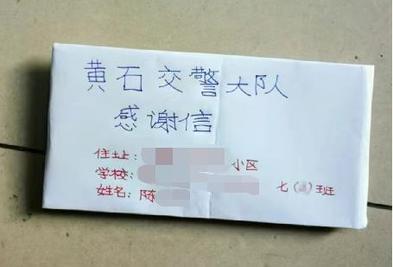 黄石交警大队
感谢信
住址: 小区
学校:
姓名: 陈 七( )班